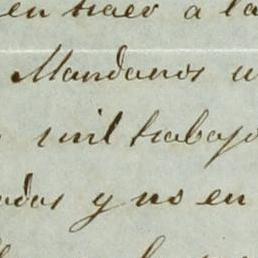 en traer a la
Mandaros u
mil trabajo
adas y no en